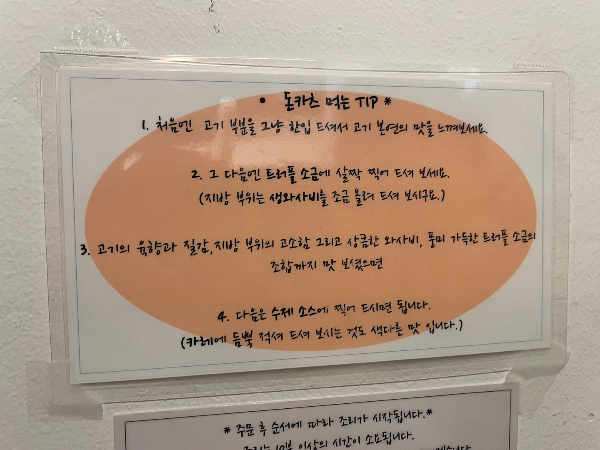 • 돈카츠 먹는 TIP *
1. 처음엔 고기 부분을 그냥 한입 드셔서 고기 본연의 맛을 느껴보세요.
2. 그 다음엔 트러플 소금에 살짝 찍어 드셔 보세요.
(지방 부위는 생와사비를 조금 올려 드셔 보시구요.)
3. 고기의 육향과 질감, 지방 부위의 고소함 그리고 상큼한 와사비, 풍미 가득한 트러플 소금의
조합까지 맛 보셨으면
4. 다음은 수제 소스에 찍어 드시면 됩니다.
(카레에 듬뿍 적셔 드셔 보시는 것도 색다른 맛 입니다.)
* 주문 후 순서에 따라 조리가 시작됩니다.*
이상의 시간이 소요됩니다.